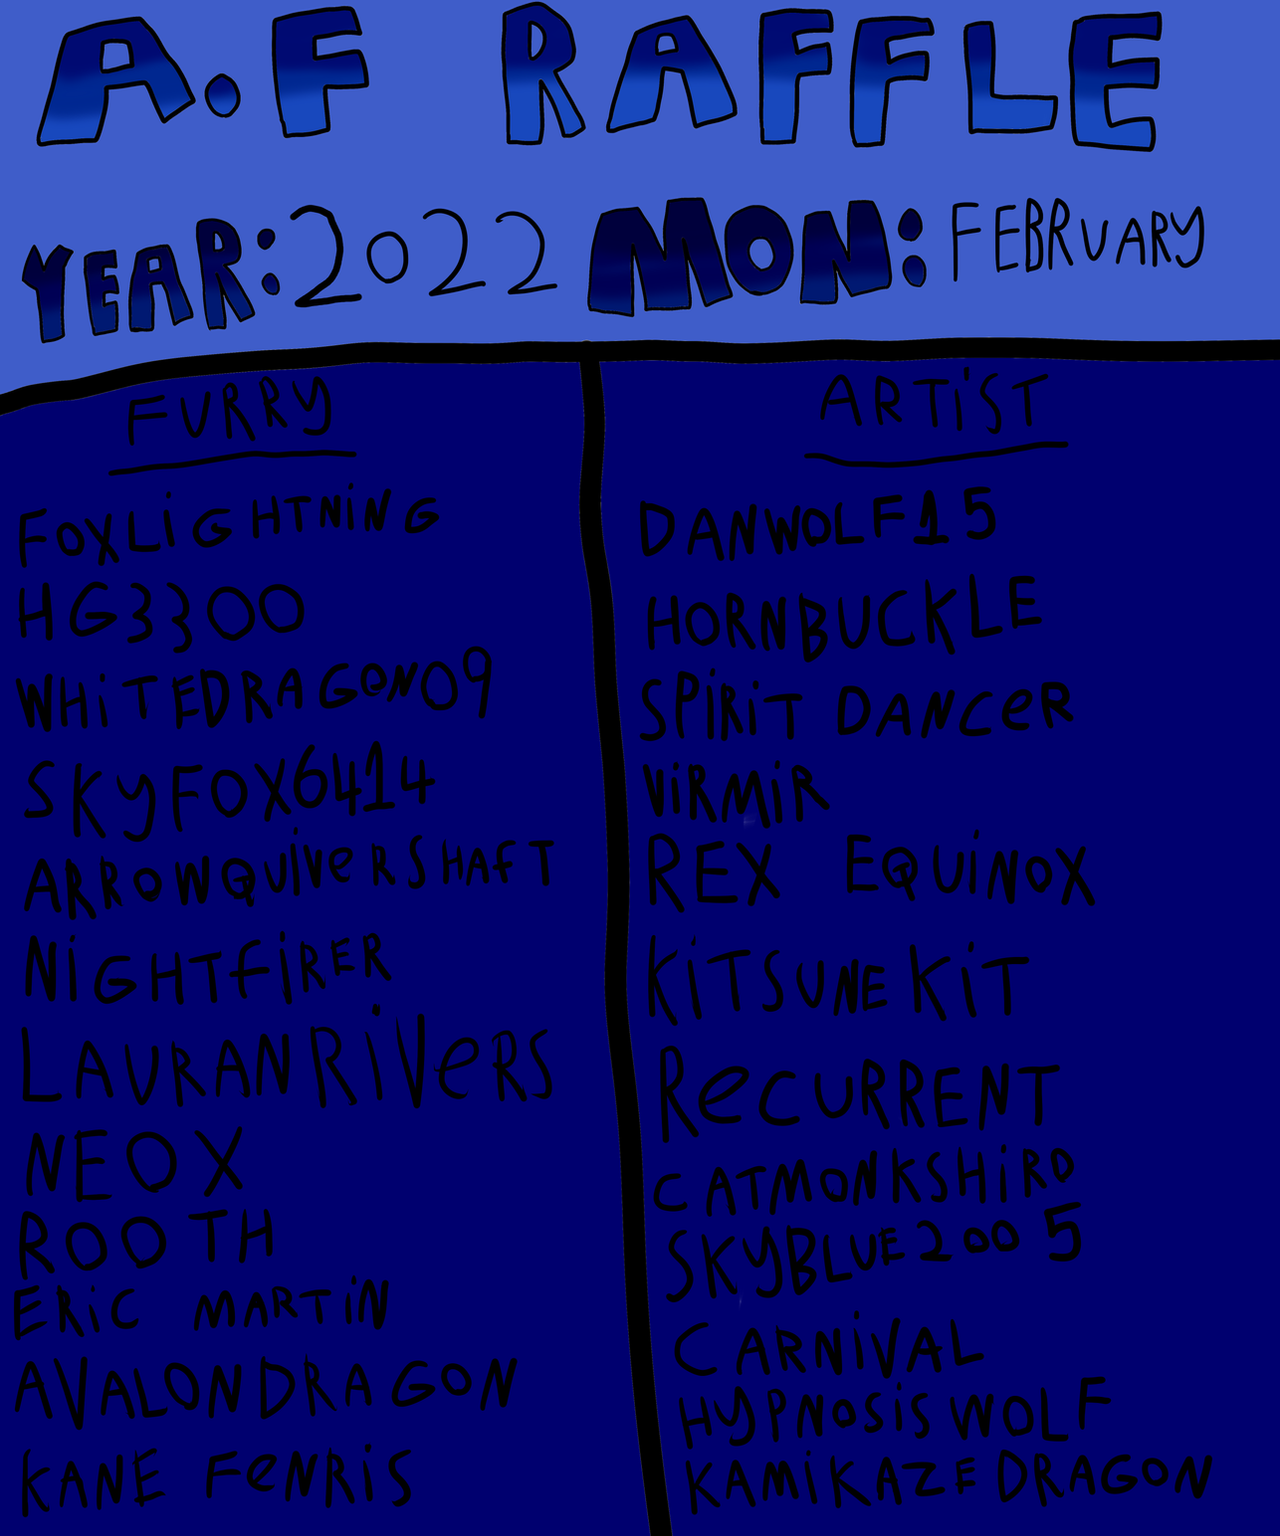 A.F RAFFLE
YEAR: 2022 MON: FEBRUARY
FURRY
FOXLiGHTNiNG
HG3300
WHiTEDRAGON09
SKYFOX6414
ARROWQUiVeRSHAfT
NiGHTfiRER
LAURANRiVeRS
NEOX
ROOTH
ERiC MARTiN
AVALONDRAGON
KANE FeNRiS
ARTiST
DANWOLF15
HORNBUCKLE
SPiRiT DANCeR
ViRMiR
REX EQUiNOX
KiTSUNEKiT
ReCURRENT
CATMONKSHiRO
SKYBLUE2005
CARNiVAL
HYPNOSiSWOLF
KAMiKAZEDRAGON